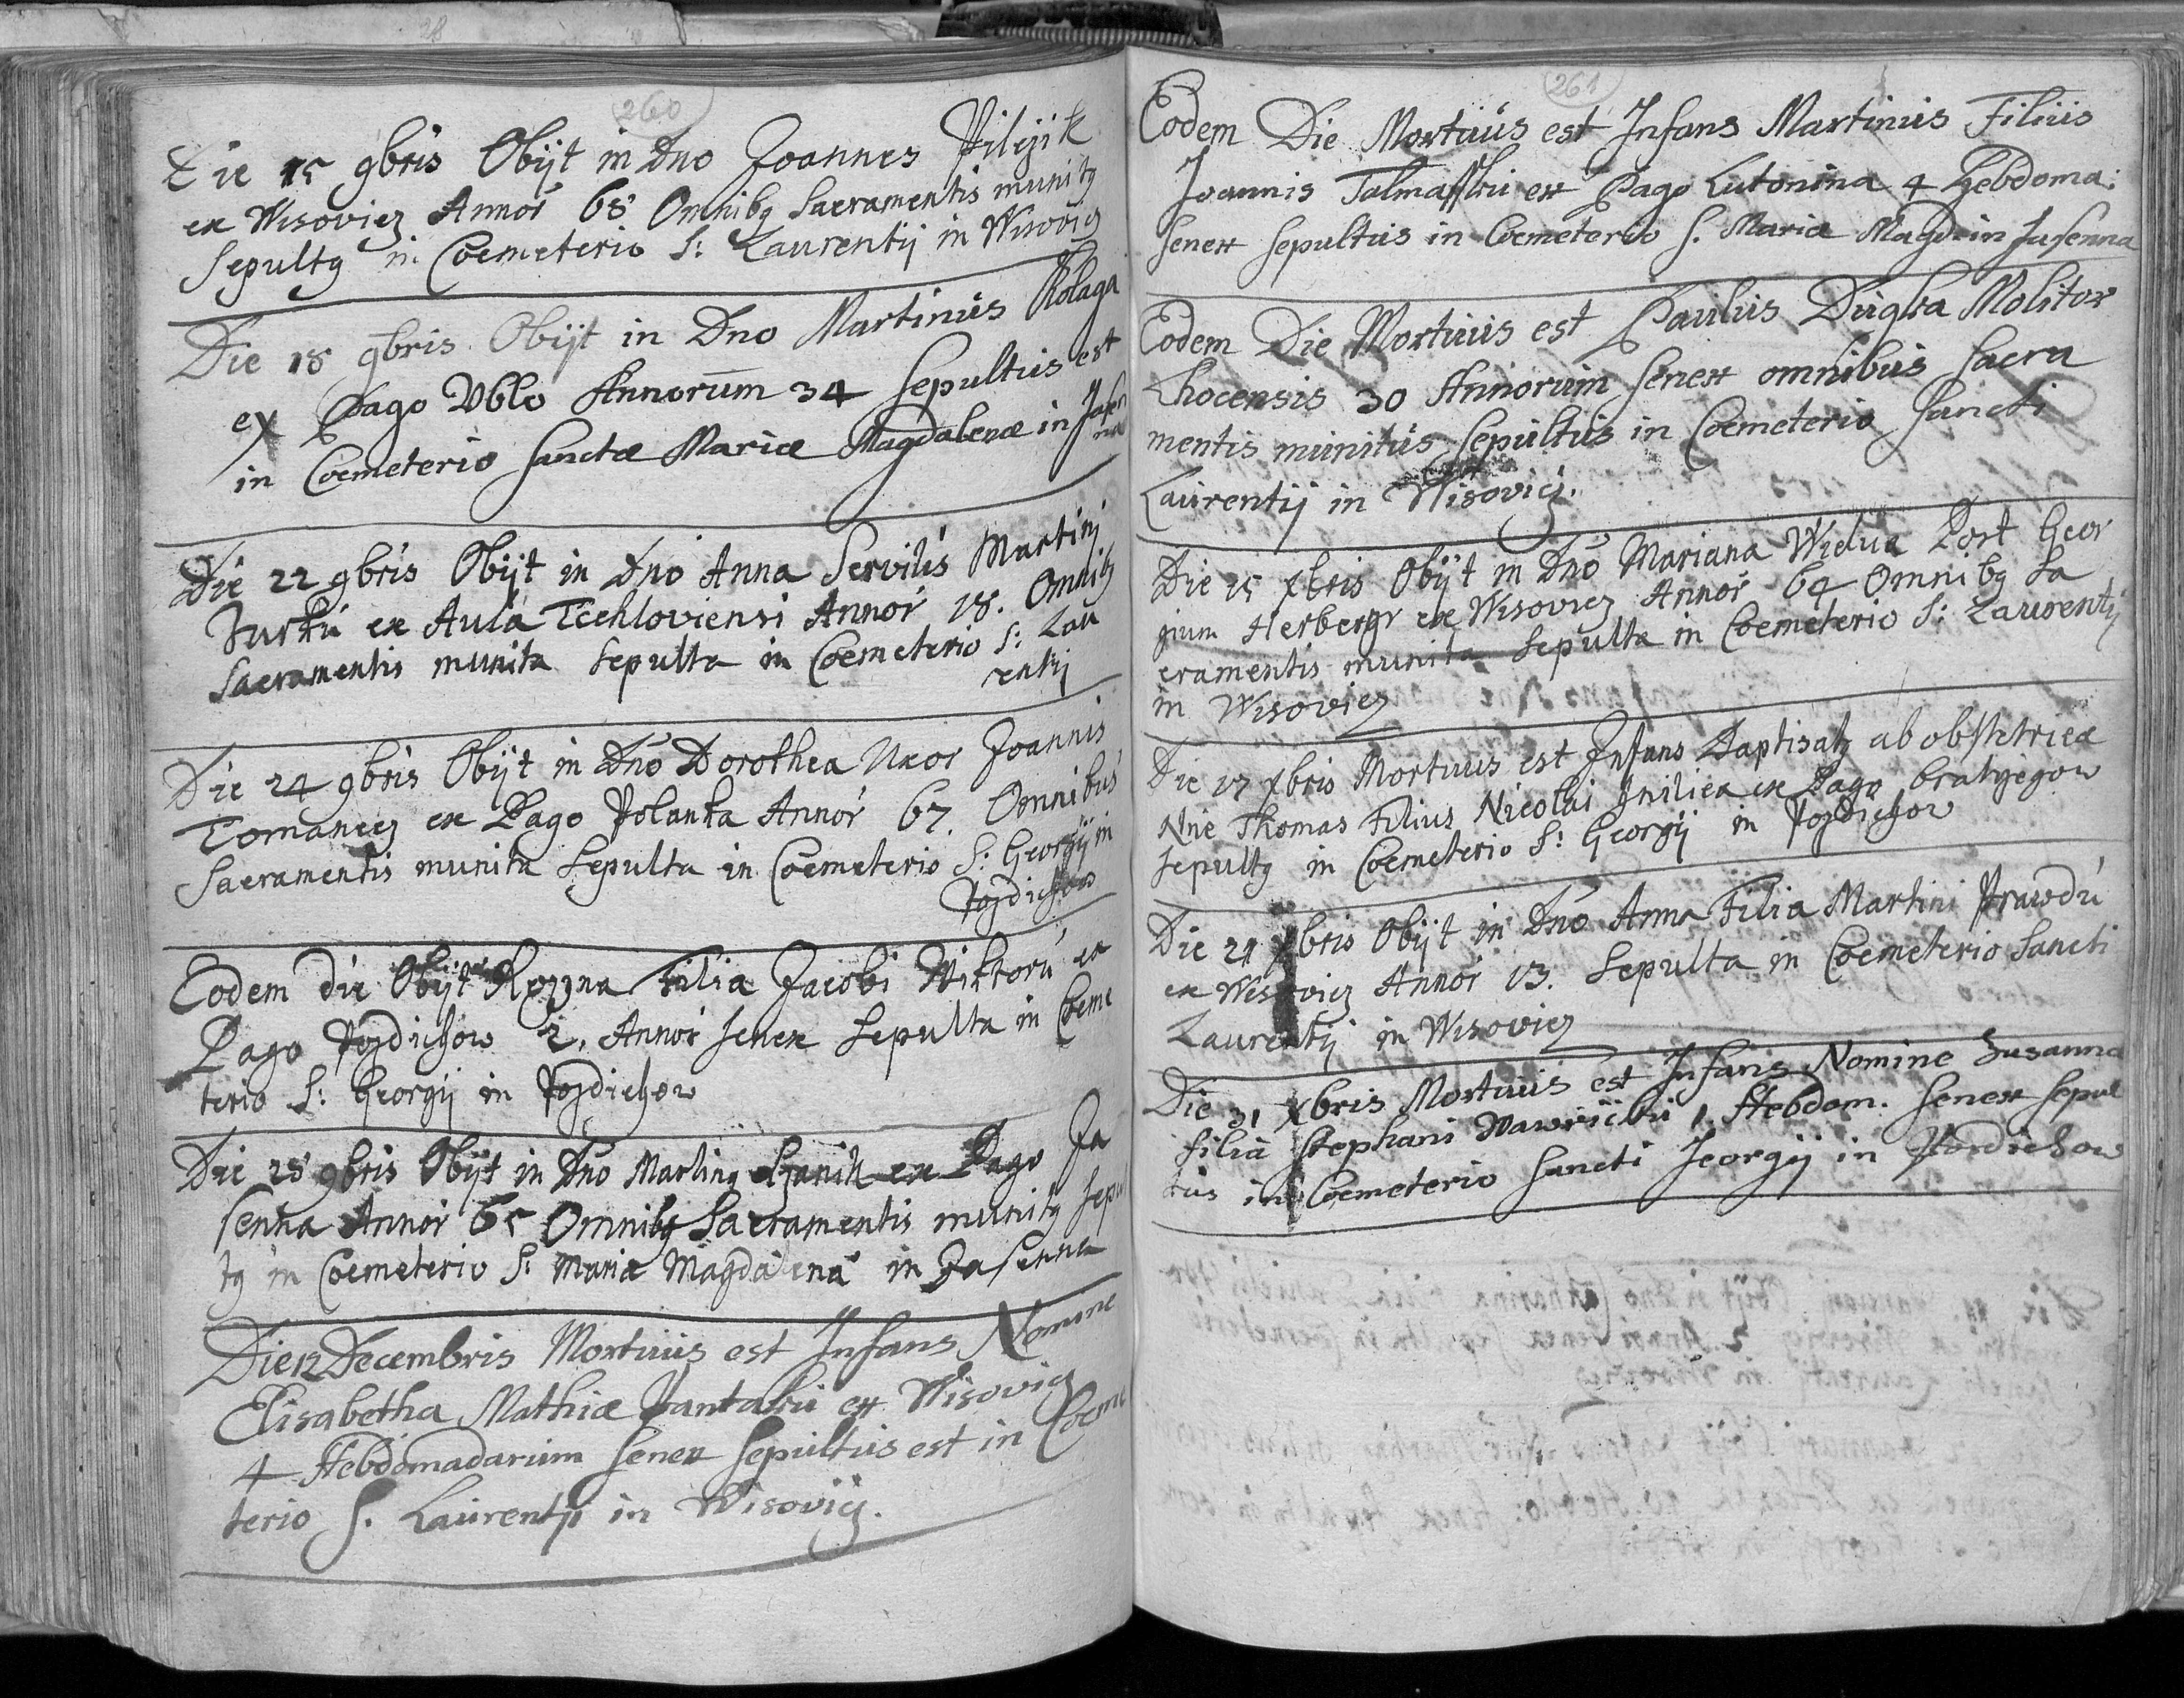 260
Die 15 9bris Obijt in Dno Joannes Pilcjik
ex Wisovicz Annor 68 Omnibq Sacramentis munitq
Sepultq in Coemeterio S: Laurentij in Wisovicz
Die 18 9bris Obijt in Dno Martinus Kolaga
ex Pago Vblo Annorum 34 Sepultus est
in Coemeterio Sanctæ Mariæ Magdalenæ in Jasen
na
Die 22 9bris Obijt in Dno Anna Servilis Martini
Jurku ex Aula Tcehloviensi Annor 18. Omnibq
Sacramentis munita Sepulta in Coemeterio S: Lau
rentij
Die 24 9bris Obijt in Dno Dorothea Uxor Joannis
Tomancez ex Pago Polanka Annor 67. Omnibus
Sacramentis munita Sepulta in Coemeterio S: Georgij in
Pozdichow
Eodem die Obijt Rozyna Filia Jacobi Wiktoru ex
Pago Pozdichow 2. Annor senex Sepulta in Coeme
terio S: Georgij in Pozdichow
Die 28 9bris Obijt in Dno Martinq ex Pago Ja
senna Annor 65 Omnibq Sacramentis munitq Sepul
tq in Coemeterio S: Mariæ Magdalena in Jasenna
Die 12 Decembris Mortuus est Infans Nomine
Elisabetha Mathiæ Pantaku ex Wisovicz
4 Hebdomadarum senex Sepultus est in Coeme
terio S. Laurentji in Wisovicz.
261
Eodem Die Mortuus est Infans Martinus Filius
Joannis Talmassku ex Pago Lutonina 4 Hebdoma:
senex sepultus in Coemeterio S. Maria Magd. in Jasenna
Eodem Die Mortuus est Paulus Duqka Molitor
Lhocensis 30 Annorum senex omnibus Sacra
mentis munitus Sepultus in Coemeterio Sancti
Laurentij in Wisovicz.
Die 15 Xbris Obijt in Dno Mariana Widua Post Geor
gium Herbergr ex Wisovicz Annor 64 Omnibq Sa
cramentis munita Sepulta in Coemeterio S: Laurentij
in Wisovicz
Die 17 Xbris Mortuus est Infans Baptisatq ab obstetrica
Nne Thomas Filius Nicolai ex Pago bratrzegow
Sepultq in Coemeterio S: Georgij in Pozdichow
Die 24 Xbris Obijt in Dno Anna Filia Martini Prawdu
ex Wisovicz Annor 13. Sepulta in Coemeterio Sancti
Laurentij in Wisovicz
Die 31 Xbris Mortuus est Infans Nomine Susanna
filia Stephani Wawričku 1. Hebdom. senex sepul
tus in Coemeterio Sancti Jeorgij in Pozdichow